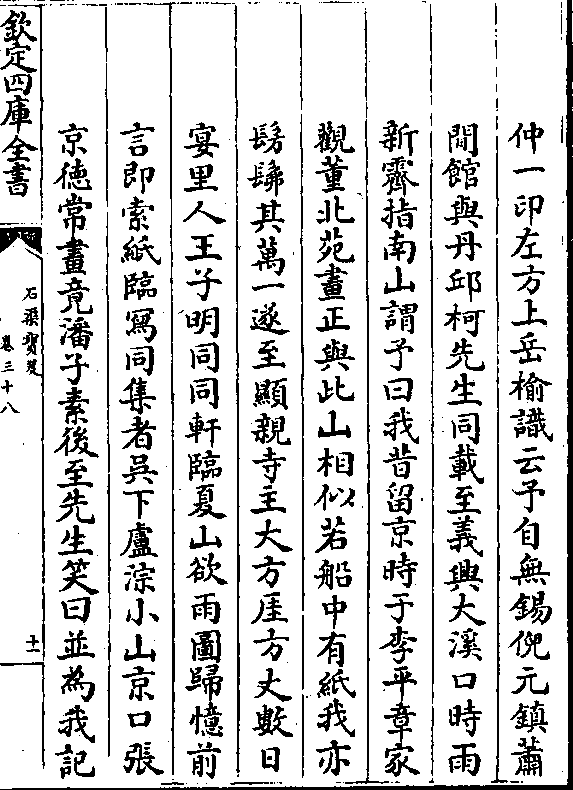 仲一印左方上岳榆識云予自無錫倪元鎮蕭
閒館與丹邱柯先生同載至義興大溪口時雨
新霽指南山謂予曰我昔留京時于李平章家
觀董北苑畫正與此山相似若船中有紙我亦
髣髴其萬一遂至顯親寺主大方厓方丈數日
宴里人王子明同同軒臨夏山欲雨圖歸憶前
言即索紙臨寫同集者吳下盧淙小山京口張
京德常畫竟潘子素後至先生笑曰並為我記
欽定四庫全書
石渠寶笈
卷三十八
十一